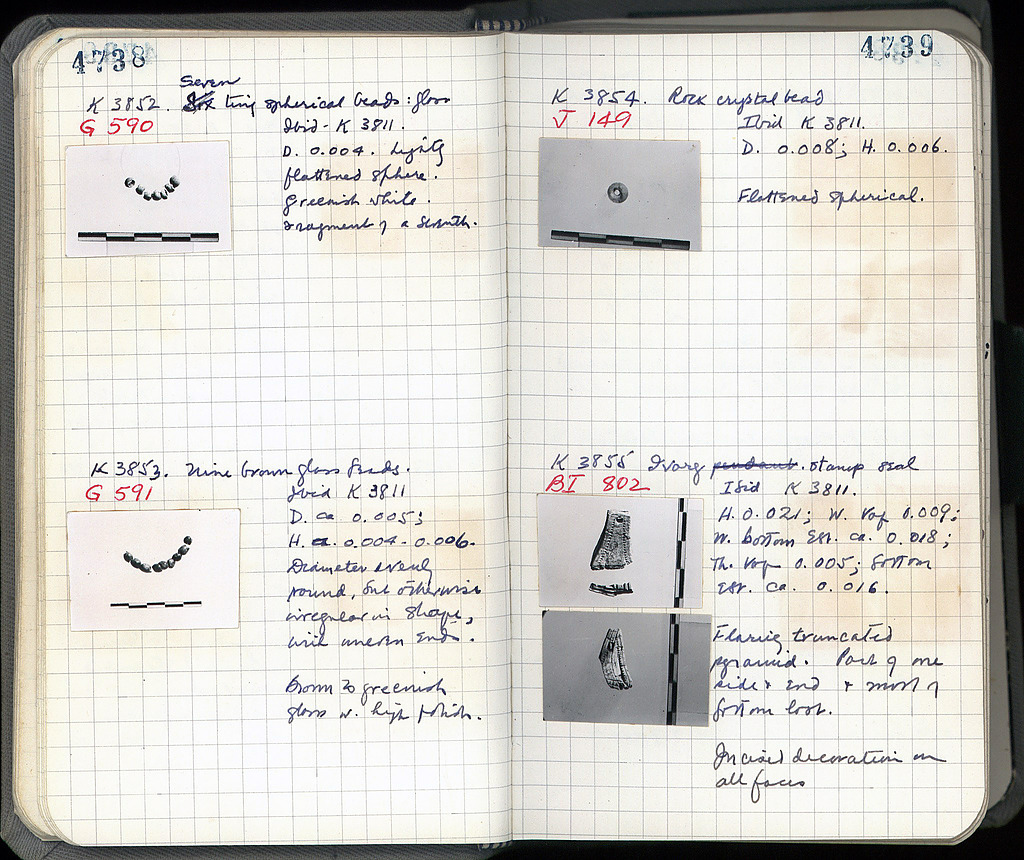 4738
Seven
K 3852. Six tiny spherical beads: glass
G 590
Ibid - K 3811.
D. 0.004. Lightly
flattened sphere.
Greenish white.
Fragment of a seventh.
K 3853. Nine brown glass beads.
G 591
Ibid K 3811
D. ca 0.005;
H. ca. 0.004-0.006.
Diameter evenly
round, but otherwise
irregular in shape,
with uneven ends.
Brown to greenish
glass w. high polish.
4739
K 3854. Rock crystal bead
J 149
Ibid K 3811.
D. 0.008; H. 0.006.
Flattened spherical.
K 3855 Ivory pendant. stamp seal
BI 802
Ibid K 3811.
H. 0.021; W. top 0.009;
W. bottom est. ca. 0.018;
Th. top 0.005; bottom
est. ca. 0.016.
Flaring truncated
pyramid. Part of one
side & end & most of
bottom lost.
Incised decoration on
all faces